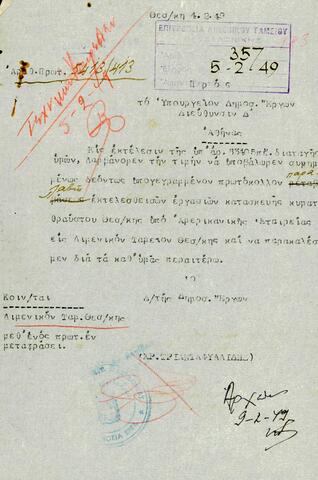 Θεσ/κη 4.2.49
ΕΠΙΤΡΟΠΕΙΑ ΛΙΜΕΝΙΚΟΥ ΤΑΜΕΙΟΥ
357
5-2-49
Ἀριθ.Πρωτ.
5-2-49
Πρός
τό Ὑπουργεῖον Δημοσ.Ἔργων
Διεύθυνσιν Δ'
Ἀθήνας
Εἰς ἐκτέλεσιν τῆς ὑπ' ἀρ. διαταγῆς
ὑμῶν, λαμβάνομεν τήν τιμήν νά ὑποβάλωμεν συνημ
μένως δεόντως ὑπογεγραμμένον πρωτόκολλον παρα
λαβῆς ἐκτελεσθεισῶν ἐργασιῶν κατασκευῆς κυματ
θραύστου Θεσ/κης ὑπό Ἀμερικανικῆς Ἑταιρείας
εἰς Λιμενικόν Ταμεῖον Θεσ/κης καί νά παρακαλέσ
μεν διά τά καθ'ὑμᾶς περαιτέρω.
Ὁ
Κοιν/ται
Δ/τής Δημοσ.Ἔργων
Λιμενικόν Ταμ.Θεσ/κης
μεθ'ἑνός πρωτ.ἐν
μεταφράσει.
(ΧΡ.ΤΡΙΑΝΤΑΦΥΛΛΙΔΗΣ)
Ἀρχεῖον
9-2-49